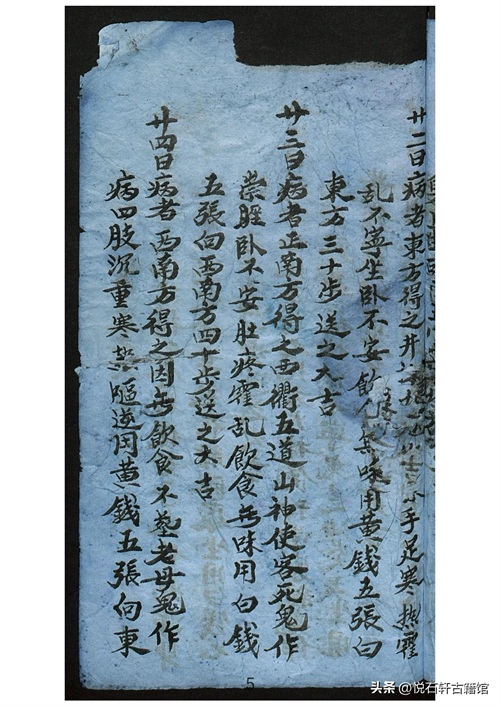 廿二日病者東方得之井手足寒熱霍
乱不寧坐卧不安飲食無味用黄錢五張向
東方三十步送之大吉
廿三日病者正南方得之西衢五道山神使客死鬼作
祟腥卧不安肚疼霍乱飲食無味用白錢
五張向西南方四十步送之大吉
廿四日病者西南方得之因無飲食不塟老母鬼作
病四肢沉重寒熱嘔逆用黄錢五張向東
5
头条 @悦石轩古籍馆